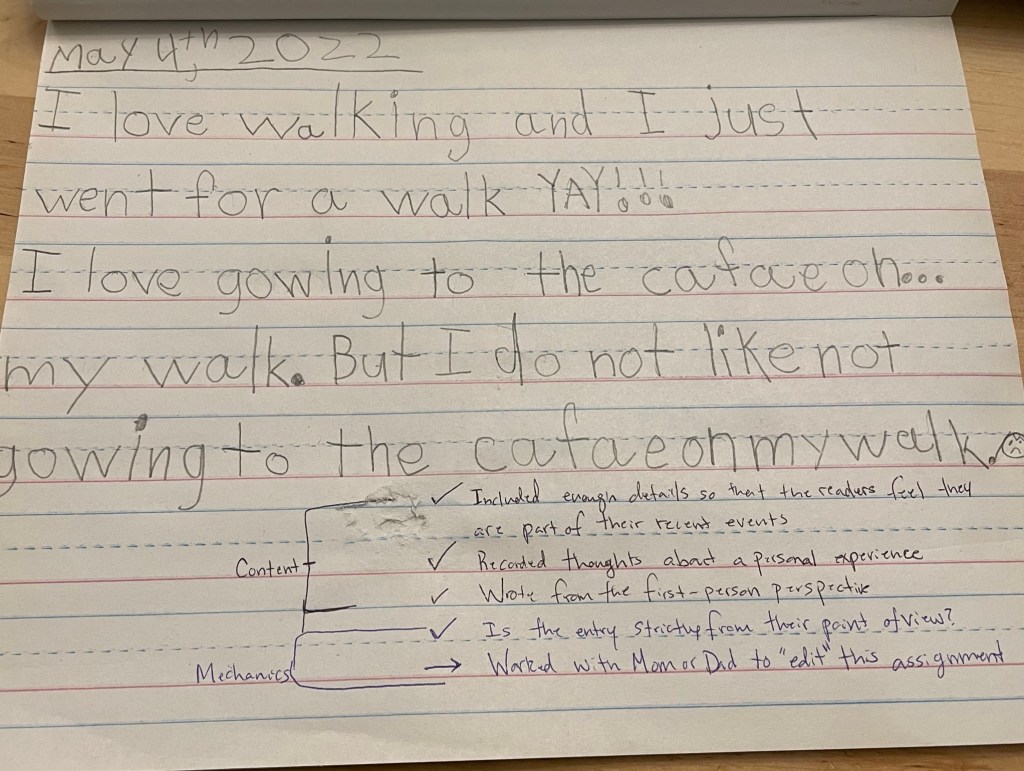 May 4th, 2022
I love walking and I just
went for a walk YAY!!!
I love gowing to the cafae on...
my walk. But I do not like not
gowing to the cafae on my walk.
✓ Included enough details so that the readers feel they
are part of their recent events
Content
✓ Recorded thoughts about a personal experience
✓ Wrote from the first-person perspective
✓ Is the entry strictly from their point of view?
Mechanics
→ Worked with Mom or Dad to "edit" this assignment